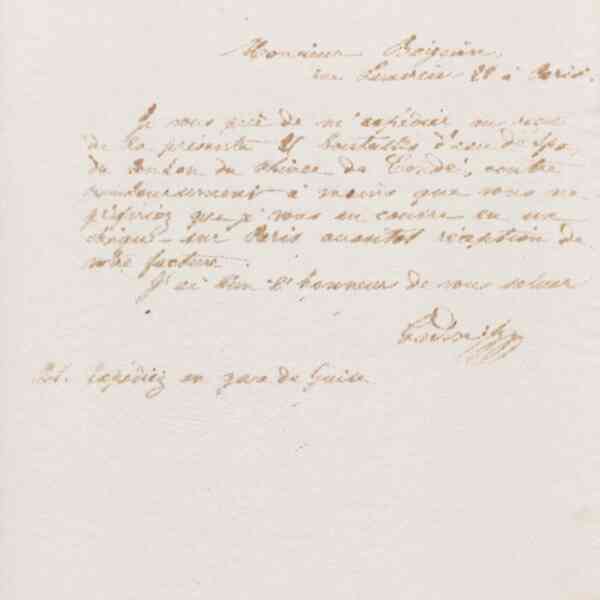 Monsieur
rue à Paris.
Je vous prie de m'expédier au reçu
de la présente bouteilles d'eau de Spa,
du Pouhon du Prince de Condé, contre
remboursement à moins que vous ne
préfériez que je vous en couvre en un
chèque sur Paris aussitôt réception de
votre facture.
J'ai bien l'honneur de vous saluer
Godin
PS. Expédiez en gare de Guise.